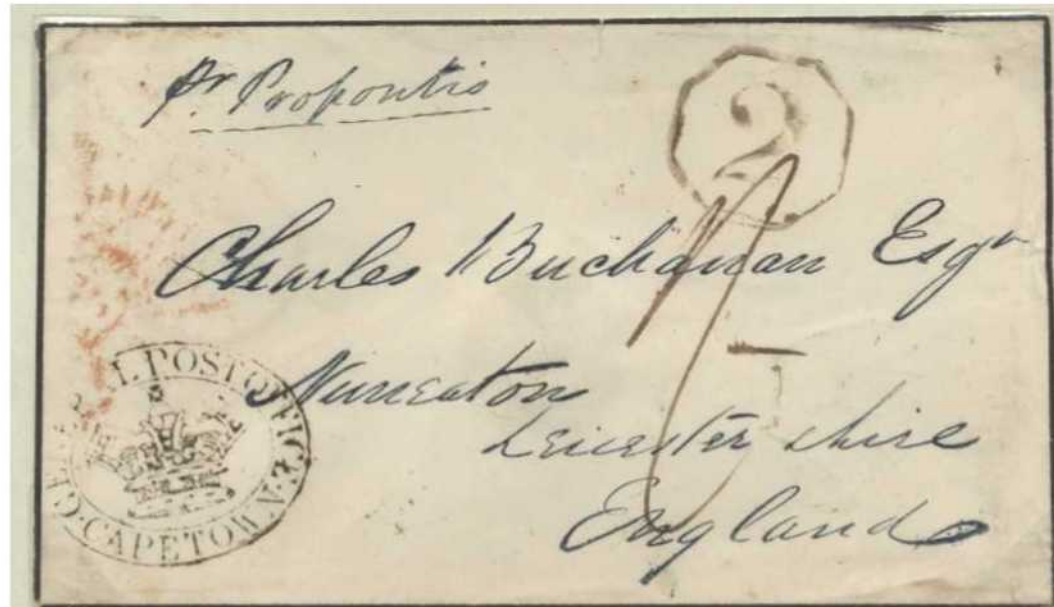 pr Propontis
2
Charles Buchanan Esqr
Nuneaton
Leicester shire
England
GENERAL POST OFFICE · CAPE TOWN ·